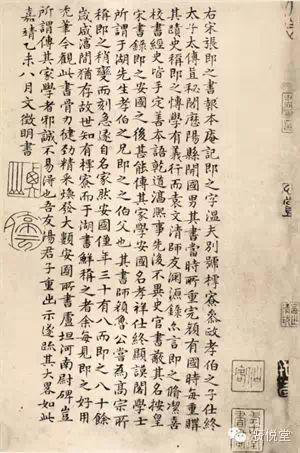 右宋張即之書報本庵記即之字溫夫別號樗寮參政孝伯之子仕終
太子太傅直秘閣歷陽縣開國男其書當時所重完顏有國時每重購
其蹟史稱即之博學有義行而袁文清師友淵源錄亦言即之脩潔喜
校書經史皆手定善本語乾道淳熙事先後不異史官書蔽其名按皇
宋書錄即之安國之後甚能傳其家學安國名孝祥仕終顯謨閣學士
所謂于湖先生孝伯之兄即之之伯父也其書師顏魯公嘗為高宗所
稱即之稍變而刻急遂自名家然安國僅年三十有八而即之八十餘
歲咸淳間猶存故世知有樗寮而于湖書鮮稱之者余每見即之好用
禿筆今觀此書骨力健勁精采煥發大類安國所書盧坦河南尉碑豈
所謂傳其家學者邪誠不易得也吾友湯君子重出示遂疏其大略如此
嘉靖乙未八月文徵明書